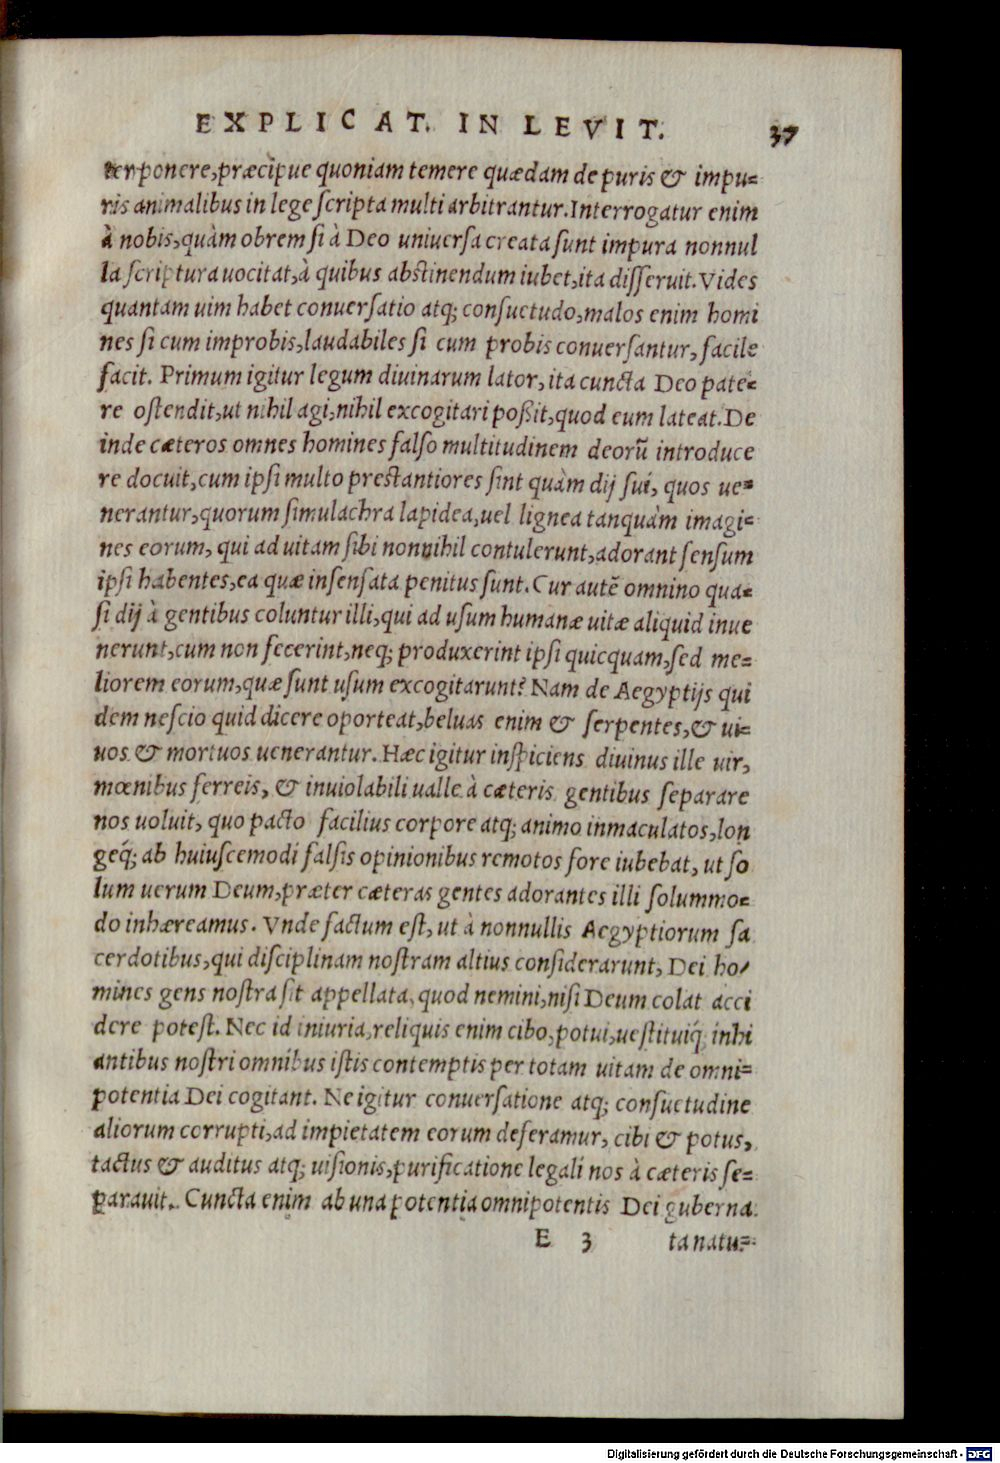 EXPLICAT. IN LEVIT. 37
terponere, præcipue quoniam temere quædam de puris & impu=
ris animalibus in lege scripta multi arbitrantur. Interrogatur enim
à nobis, quàm obrem si à Deo uniuersa creata sunt impura nonnul
la scriptura uocitat, à quibus abstinendum iubet, ita disseruit. Vides
quantam uim habet conuersatio atq; consuetudo, malos enim homi
nes si cum improbis, laudabiles si cum probis conuersantur, facile
facit. Primum igitur legum diuinarum lator, ita cuncta Deo pate=
re ostendit, ut nihil agi, nihil excogitari poßit, quod eum lateat. De
inde cæteros omnes homines falso multitudinem deorũ introduce
re docuit, cum ipsi multo prestantiores sint quàm dij sui, quos ue=
nerantur, quorum simulachra lapidea, uel lignea tanquàm imagi=
nes eorum, qui ad uitam sibi nonnihil contulerunt, adorant sensum
ipsi habentes, ea quæ insensata penitus sunt. Cur autẽ omnino qua=
si dij à gentibus coluntur illi, qui ad usum humanæ uitæ aliquid inue
nerunt, cum non fecerint, neq; produxerint ipsi quicquam, sed me=
liorem eorum, quæ sunt usum excogitarunt? Nam de Aegyptijs qui
dem nescio quid dicere oporteat, beluas enim & serpentes, & ui=
uos & mortuos uenerantur. Hæc igitur inspiciens diuinus ille uir,
mœnibus ferreis, & inuiolabili ualle à cæteris gentibus separare
nos uoluit, quo pacto facilius corpore atq; animo inmaculatos, lon
geq́; ab huiuscemodi falsis opinionibus remotos fore iubebat, ut so
lum uerum Deum, præter cæteras gentes adorantes illi solummo=
do inhæreamus. Vnde factum est, ut à nonnullis Aegyptiorum sa
cerdotibus, qui disciplinam nostram altius considerarunt, Dei ho/
mines gens nostra sit appellata, quod nemini, nisi Deum colat acci
dere potest. Nec id iniuria, reliquis enim cibo, potui, uestituiq́; inhi
antibus nostri omnibus istis contemptis per totam uitam de omni=
potentia Dei cogitant. Ne igitur conuersatione atq; consuetudine
aliorum corrupti, ad impietatem eorum deferamur, cibi & potus,
tactus & auditus atq; uisionis, purificatione legali nos à cæteris se=
parauit. Cuncta enim ab una potentia omnipotentis Dei guberna
E 3 ta natu=
Digitalisierung gefördert durch die Deutsche Forschungsgemeinschaft - DFG